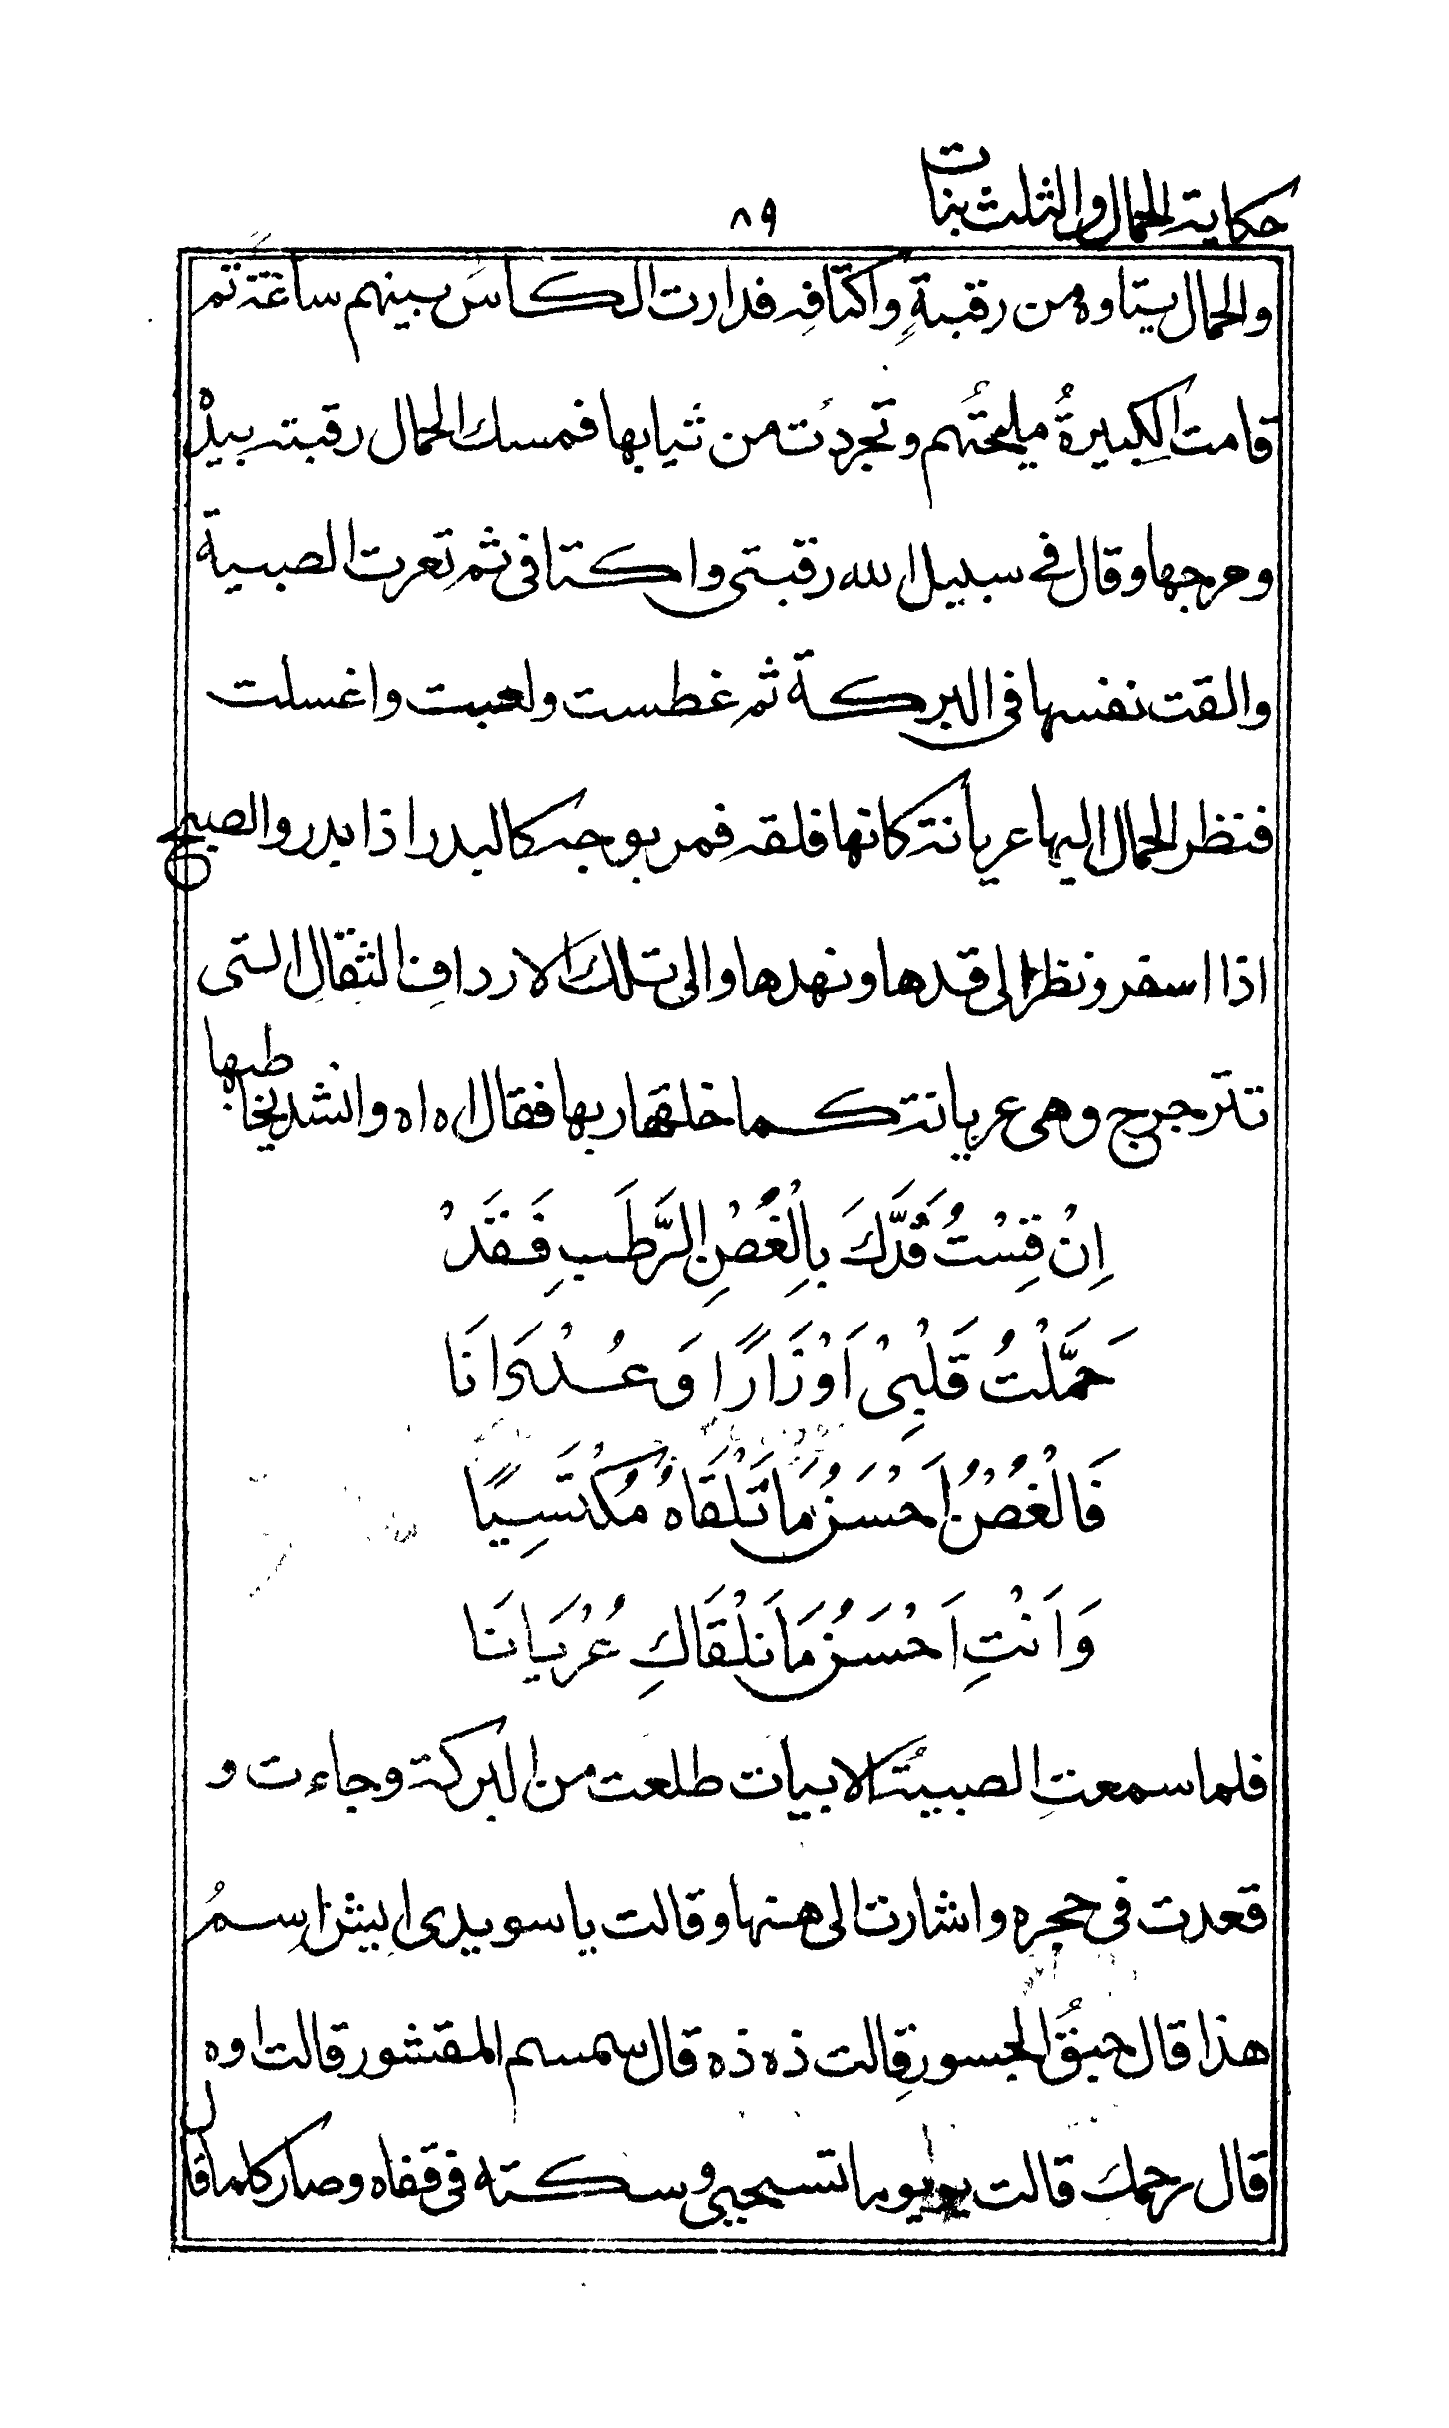 حكاية الحمال والثلث بنات
٨٩
والحمال يتاوه من رقبةٍ واكتافهِ فدارت الكاسَ بينهم ساعَة ثم
قامت الكِبيرةُ مليحتُهم وتجردُت من ثيابها فمسك الحمال رقبته بيدْه
وهرجها وقال في سبيل الله رقبتي واكتافي ثم تعرت الصبية
والقت نفسها في البركة ثم غطست ولعبت واغسلت
فنظر الحمال اليها عريانة كانها فلقه قمر بوجه كالبدر اذا بدر والصبح
اذا اسفر ونظر الى قدها ونهدها والى تلك الاردافِ الثقالِ التي
تترجرج وهي عريانة كما خلقها ربها فقال اه اه وانشد يخاطبها
اِنْ قِسْتُ قَدَّكَ بِالْغُصْنِ الرَّطَبِ فَقَدْ
حَمَّلْتُ قَلْبِيْ اَوْزَارًا وَعُدْوَانَا
فَالْغُصْنُ اَحْسَنُ مَا تَلْقَاهُ مُكْتَسِيًا
وَاَنْتِ اَحْسَنُ مَا نَلْقَاكِ عُرْيَانَا
فلما سمعتِ الصبيَّةُ الابيات طلعت من البركة وجاءت و
قعدت في حجره واشارت الى هنها وقالت يا سويدى ايش اِسمُ
هذا قال حبقُ الجسورِ قالت ذه ذه قال سمسم المقشور قالت اوه
قال رحمك قالت يويو ما تستحيي وسكته في قفاه وصار كلما قال